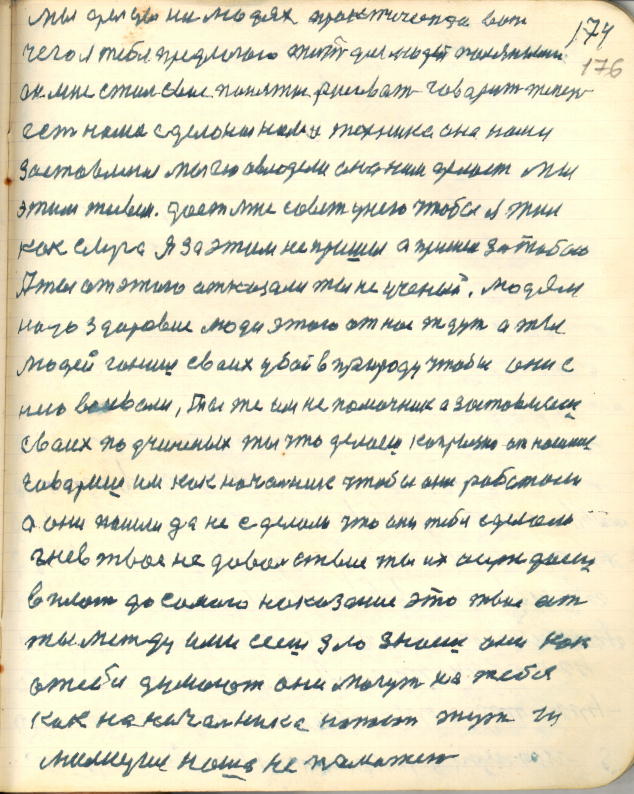 174
176
мы сделаю на людях практически да вот
чего я тебя предлогаю
он мне стал свае понятие рисоват говарит
ест наша сделоная нами техника она нами
заставлена мы ею овлодели она нам делает мы
этим живем. дает мне совет унего чтобы я жил
как слуга Я за этим не пришел а пришел за тобою
А ты от этого отказался ты не ученый. Людям
надо здоровие люди этого от нас ждут а ты
людей гониш своих убой в природу чтобы они с
нею воевали, Ты же им не помочник а заставляеш
сваих подчиненых ты что делаеш
говариш им как началник чтобы они работали
а они пошли да не сделали что они тебя сделали
гнев твое не доволствие ты их осуждаеш
вплот до самого наказание это твое
ты между ими сееш зло знаеш они как
о тебя думают они могут на тебя
как на качалника
милиция наша не паможет